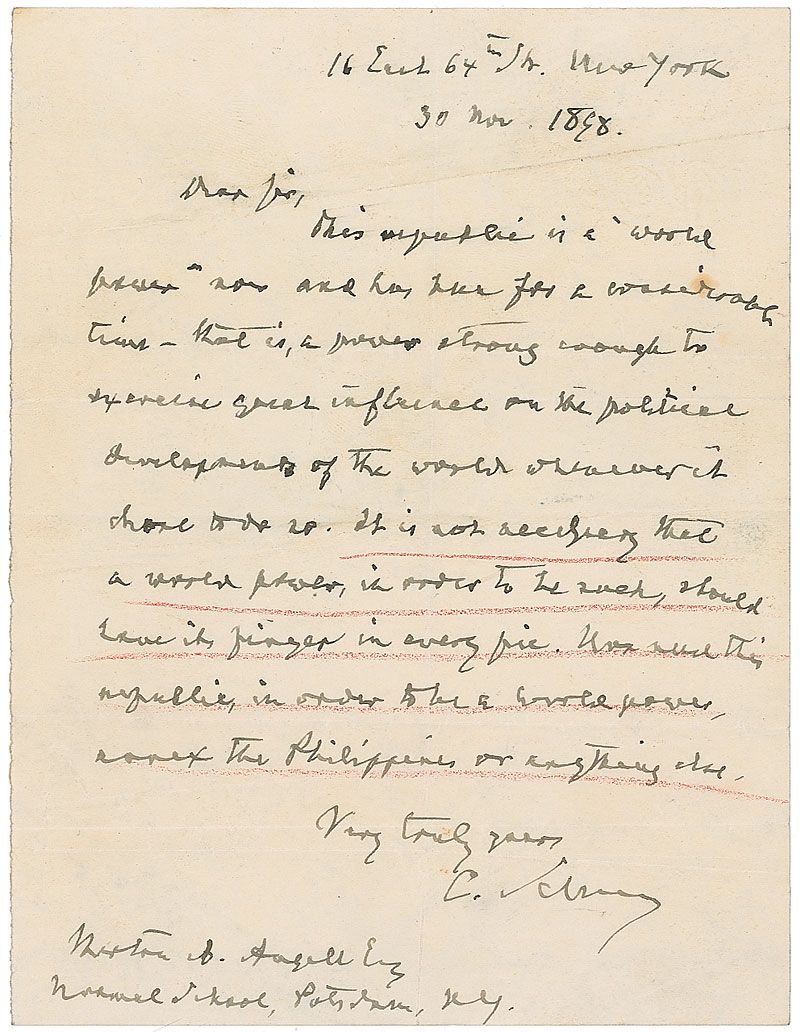 16 East 64th St. New York
30 Nov. 1898.
Dear Sir,
This republic is a "world
power" now and has been for a considerable
time – that is, a power strong enough to
exercise great influence on the political
developments of the world whenever it
chose to do so. It is not necessary that
a world power, in order to be such, should
have its finger in every pie. Nor need this
republic, in order to be a world power,
annex the Philippines or anything else.
Very truly yours
C. Schurz
A. Angell Esq
Normal School, Potsdam, N.Y.